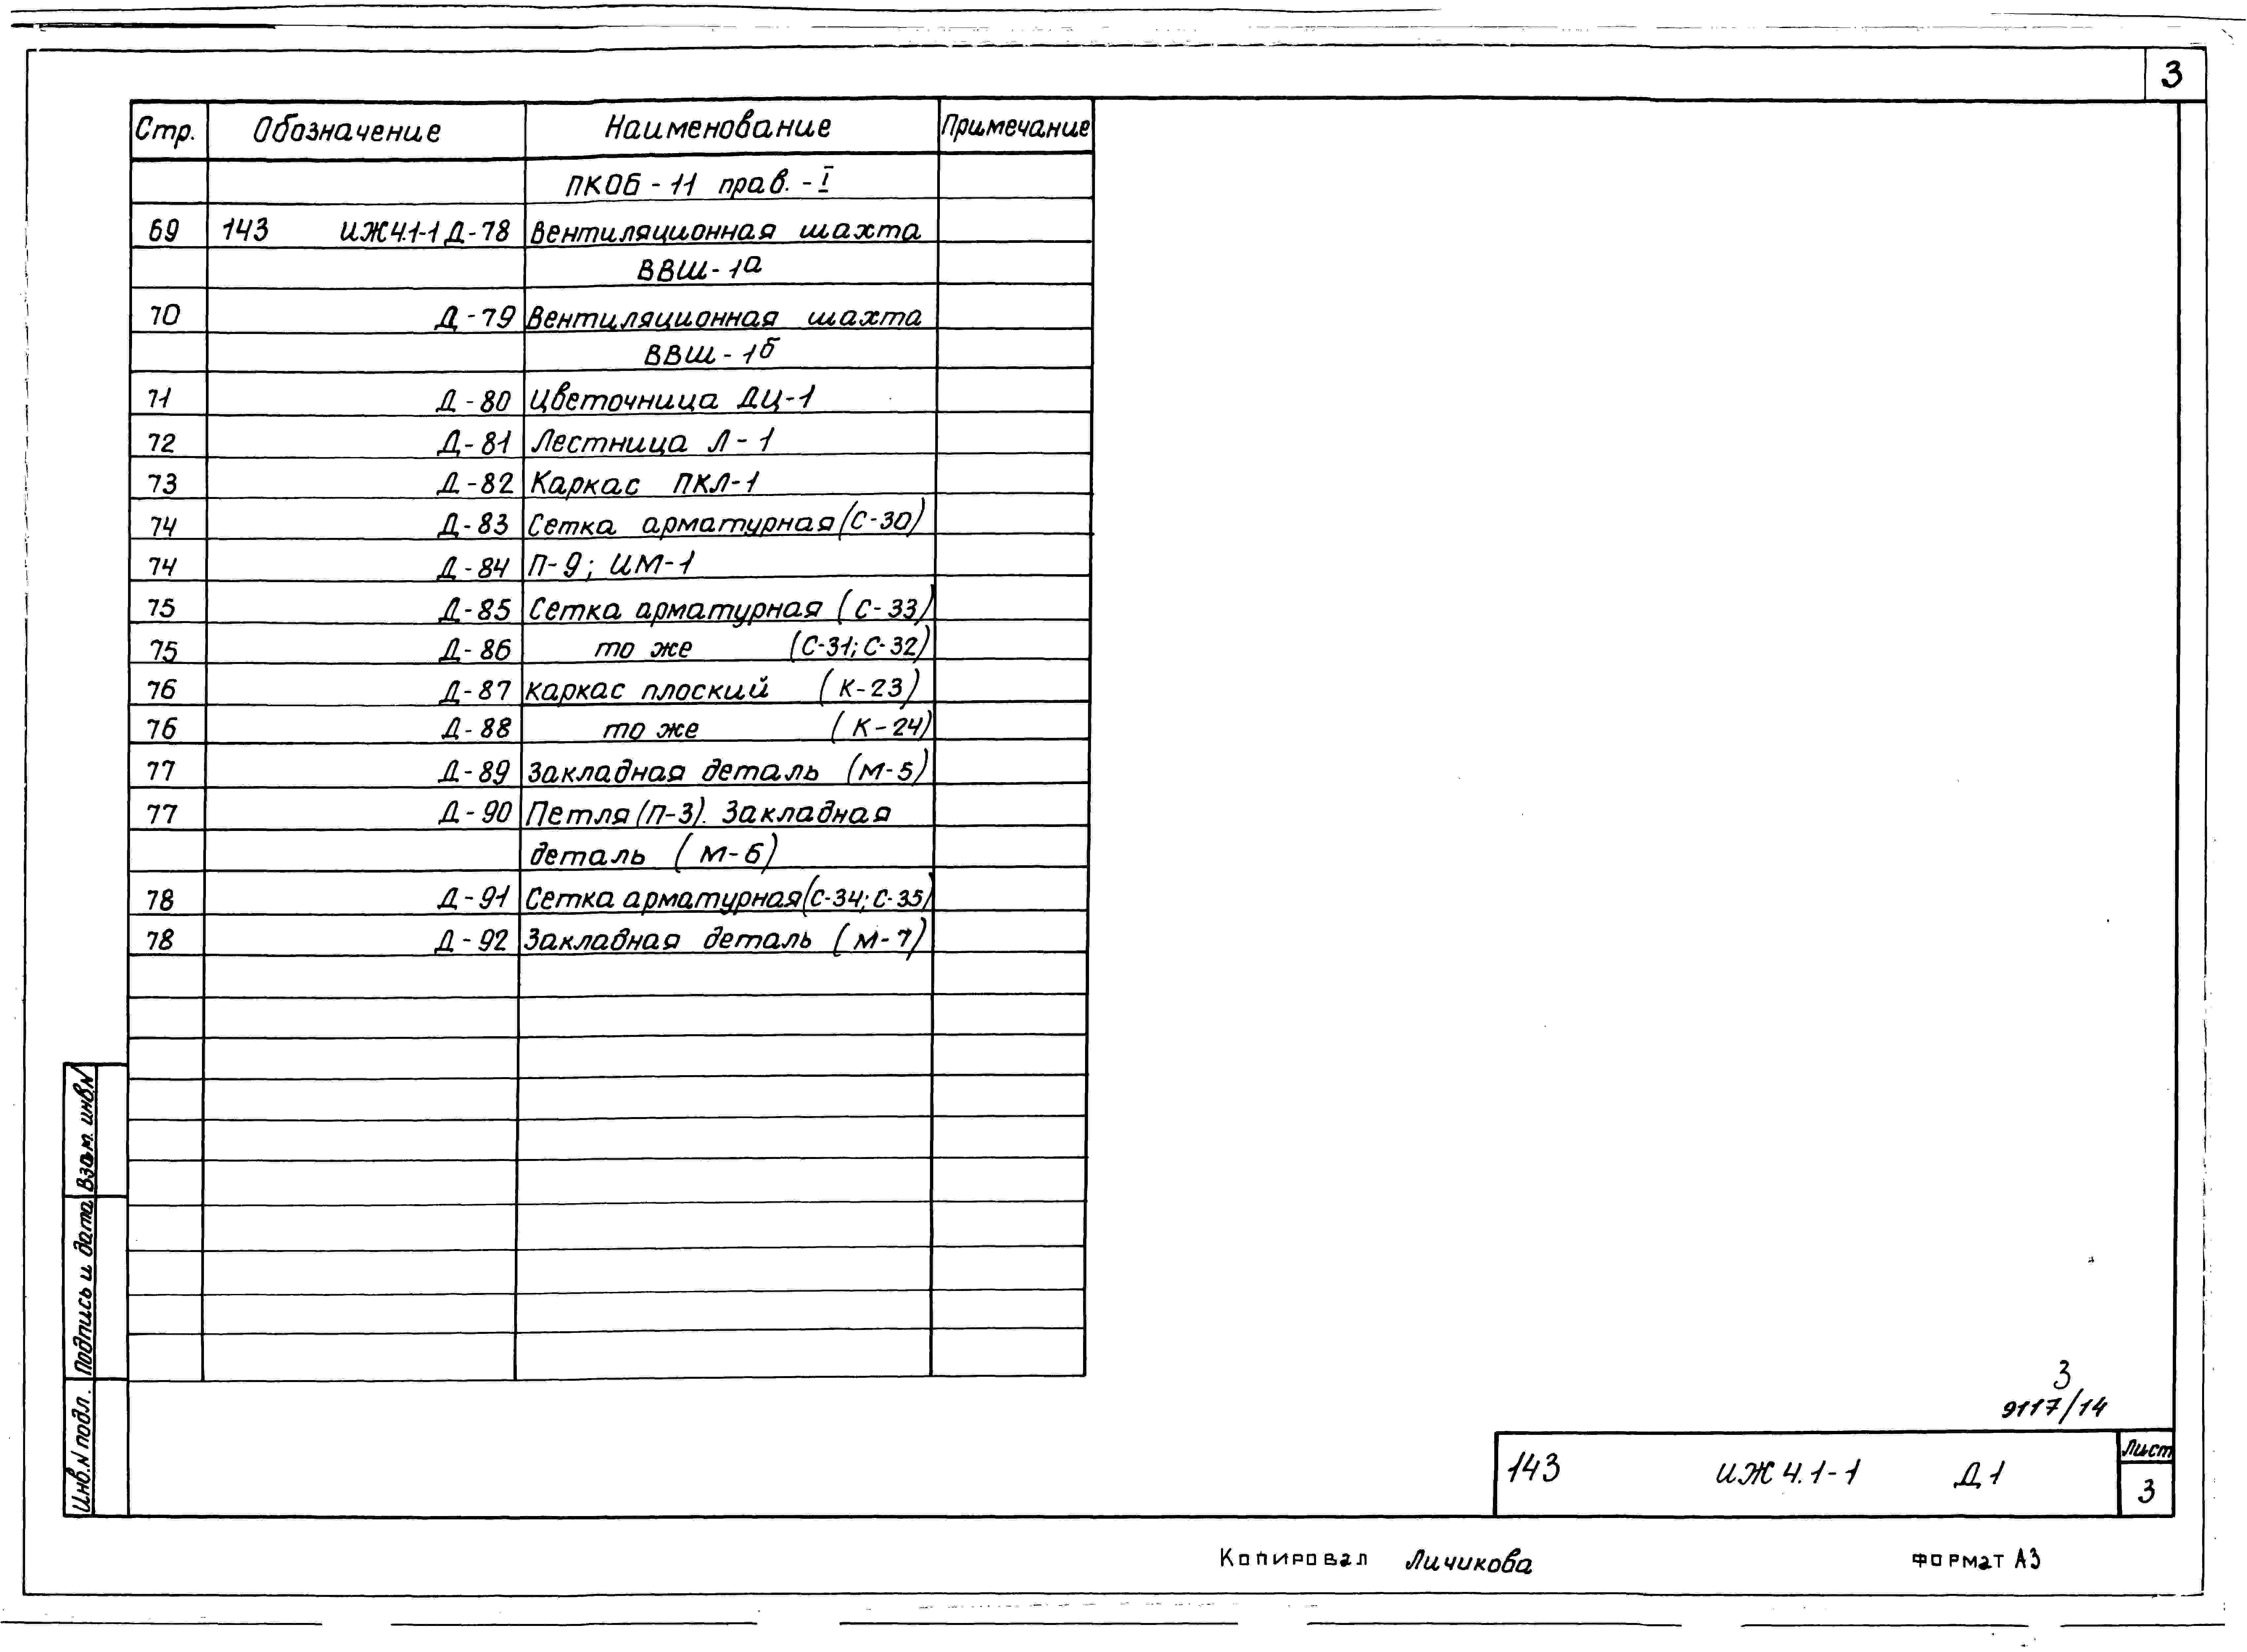 3
Стр. Обозначение Наименование Примечание
ПКОБ - 11 прав. - I
69 143 ИЖ4.1-1 Д-78 Вентиляционная шахта
ВВШ-1а
70 Д-79 Вентиляционная шахта
ВВШ-1б
71 Д-80 Цветочница ДЦ-1
72 Д-81 Лестница Л-1
73 Д-82 Каркас ПКЛ-1
74 Д-83 Сетка арматурная (С-30)
74 Д-84 П-9; ИМ-1
75 Д-85 Сетка арматурная (С-33)
75 Д-86 то же (С-31; С-32)
76 Д-87 каркас плоский (К-23)
76 Д-88 то же (К-24)
77 Д-89 Закладная деталь (М-5)
77 Д-90 Петля (П-3). Закладная
деталь (М-6)
78 Д-91 Сетка арматурная (С-34; С-35)
78 Д-92 Закладная деталь (М-7)
Взам. инв.N
Подпись и дата
Инв.N подл.
3
9117/14
143 ИЖ 4.1-1 Д1
Лист
3
Копировал Личикова Формат А3